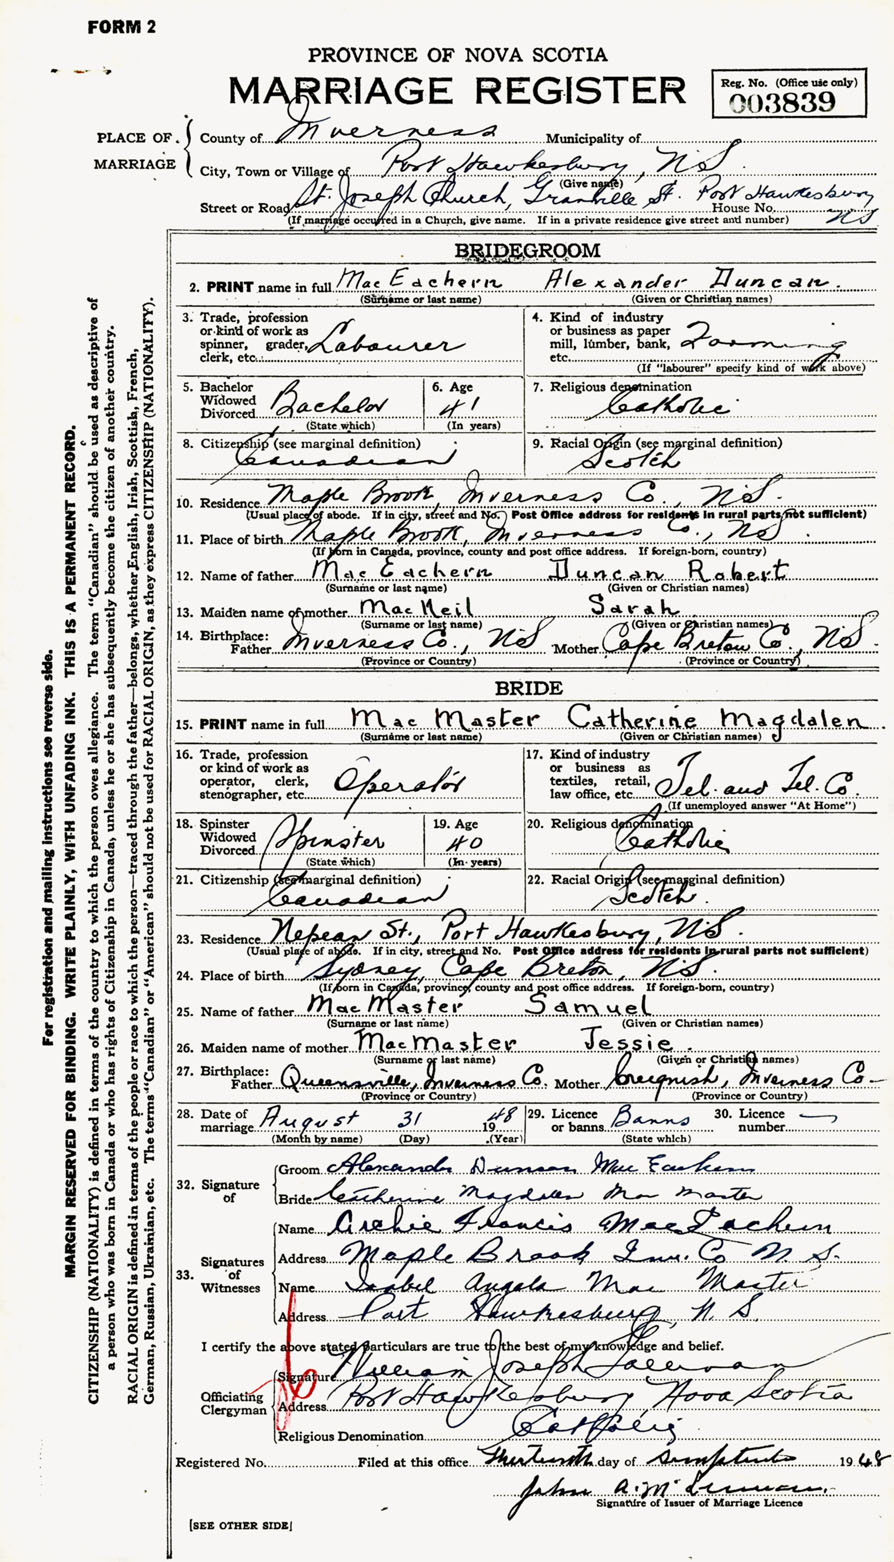 FORM 2
PROVINCE OF NOVA SCOTIA
MARRIAGE REGISTER
Reg. No. (Office use only)
003839
PLACE OF MARRIAGE
County of Inverness Municipality of
City, Town or Village of Port Hawkesbury, NS
(Give name)
Street or Road St. Joseph Church, Granville St. Port Hawkesbury House No. NS
(If marriage occurred in a Church, give name. If in a private residence give street and number)
BRIDEGROOM
2. PRINT name in full MacEachern Alexander Duncan.
(Surname or last name) (Given or Christian names)
3. Trade, profession or kind of work as spinner, grader, clerk, etc. Labourer
4. Kind of industry or business as paper mill, lumber, bank, etc. Farming
(If "labourer" specify kind of work above)
5. Bachelor Widowed Divorced Bachelor
(State which)
6. Age 41
(In years)
7. Religious denomination Catholic
8. Citizenship (see marginal definition) Canadian
9. Racial Origin (see marginal definition) Scotch
10. Residence Maple Brook, Inverness Co. NS.
(Usual place of abode. If in city, street and No. Post Office address for residents in rural parts not sufficient)
11. Place of birth Maple Brook, Inverness Co., NS.
(If born in Canada, province, county and post office address. If foreign-born, country)
12. Name of father MacEachern Duncan Robert
(Surname or last name) (Given or Christian names)
13. Maiden name of mother MacNeil Sarah
(Surname or last name) (Given or Christian names)
14. Birthplace: Father Inverness Co., NS Mother Cape Breton Co., NS.
(Province or Country) (Province or Country)
BRIDE
15. PRINT name in full MacMaster Catherine Magdalen
(Surname or last name) (Given or Christian names)
16. Trade, profession or kind of work as operator, clerk, stenographer, etc. Operator
17. Kind of industry or business as textiles, retail, law office, etc. Tel. and Tel. Co.
(If unemployed answer "At Home")
18. Spinster Widowed Divorced Spinster
(State which)
19. Age 40
(In years)
20. Religious denomination Catholic
21. Citizenship (see marginal definition) Canadian
22. Racial Origin (see marginal definition) Scotch
23. Residence Nepean St., Port Hawkesbury, NS.
(Usual place of abode. If in city, street and No. Post Office address for residents in rural parts not sufficient)
24. Place of birth Sydney, Cape Breton, NS.
(If born in Canada, province, county and post office address. If foreign-born, country)
25. Name of father MacMaster Samuel
(Surname or last name) (Given or Christian names)
26. Maiden name of mother MacMaster Jessie.
(Surname or last name) (Given or Christian names)
27. Birthplace: Father Queensville, Inverness Co. Mother Creignish, Inverness Co—
(Province or Country) (Province or Country)
28. Date of marriage August 31 1948
(Month by name) (Day) (Year)
29. Licence or banns Banns
(State which)
30. Licence number —
32. Signature of
Groom Alexander Duncan MacEachern
Bride Catherine Magdalen MacMaster
33. Signatures of Witnesses
Name Archie Francis MacEachern
Address Maple Brook Inv. Co N.S.
Name Isabel Angela MacMaster
Address Port Hawkesbury N.S.
I certify the above stated particulars are true to the best of my knowledge and belief.
Officiating Clergyman
Signature William Joseph
Address Port Hawkesbury Nova Scotia
Religious Denomination Catholic
Registered No. Filed at this office thirteenth day of 1948
John A.
Signature of Issuer of Marriage Licence
[SEE OTHER SIDE]
For registration and mailing instructions see reverse side.
MARGIN RESERVED FOR BINDING. WRITE PLAINLY, WITH UNFADING INK. THIS IS A PERMANENT RECORD.
CITIZENSHIP (NATIONALITY) is defined in terms of the country to which the person owes allegiance. The term "Canadian" should be used as descriptive of
a person who was born in Canada or who has rights of Citizenship in Canada, unless he or she has subsequently become the citizen of another country.
RACIAL ORIGIN is defined in terms of the people or race to which the person—traced through the father—belongs, whether English, Irish, Scottish, French,
German, Russian, Ukrainian, etc. The terms "Canadian" or "American" should not be used for RACIAL ORIGIN, as they express CITIZENSHIP (NATIONALITY).